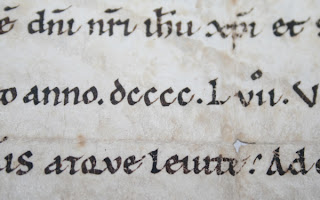 dn̄i nr̄i ih̄u xp̄i et
anno. dcccc. L vii. V
atque leuite: Ad